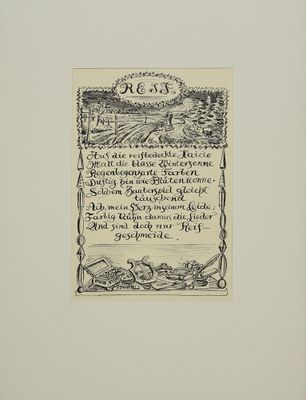 REIF.
Auf die reifbedeckte Haide
Malt die blasse Wintersonne
Regenbogenzarte Farben
Duftig hin wie Blütenwonne.
Solchem Zauberspiel gleicht
täuschend
Ach, mein Herz in seinem Leide:
Farbig blühn daraus die Lieder
Und sind doch nur Reif-
geschmeide.